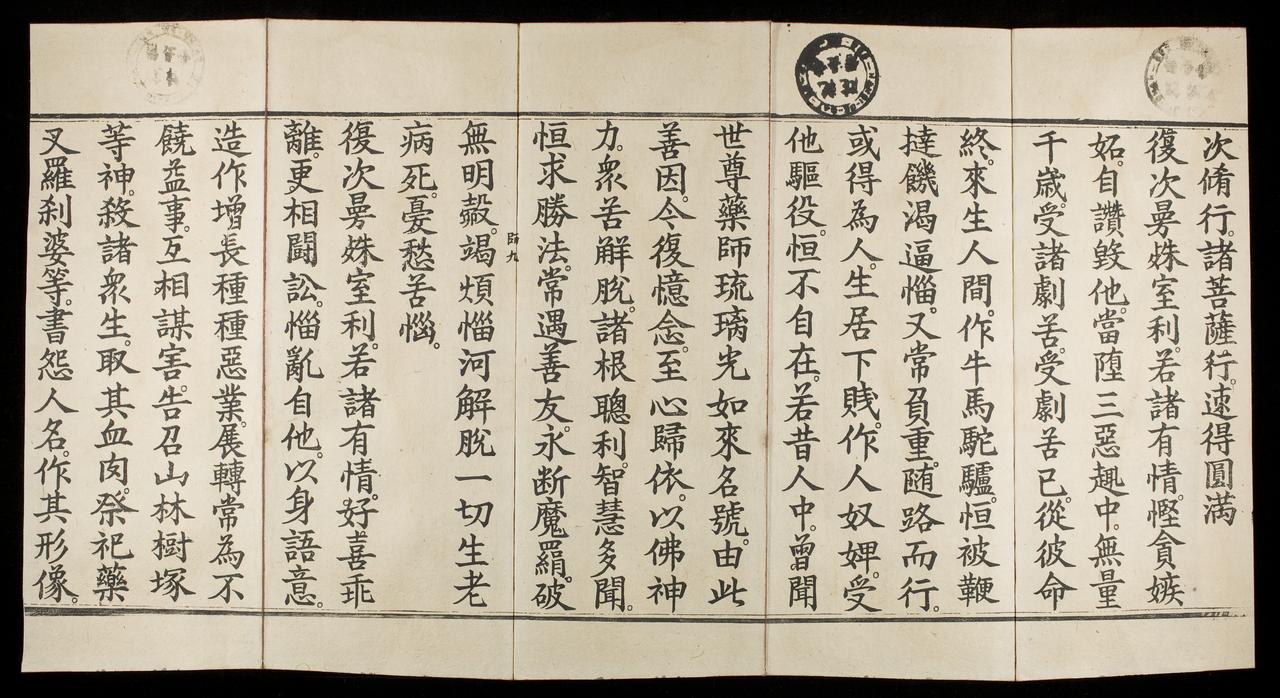 次脩行。諸菩薩行。速得圓满
復次曼殊室利。若諸有情慳貪嫉
妬。自讚毀他。當墮三惡趣中。無量
千歲。受諸劇苦。受劇苦已。從彼命
終。來生人間。作牛馬駝驢。恒被鞭
撻饑渴逼惱。又常負重。随路而行。
或得為人。生居下賤。作人奴婢。受
他驅役。恒不自在。若昔人中。曾聞
世尊藥師琉璃光如來名號。由此
善因。今復憶念。至心歸依。以佛神
力。衆苦解脫。諸根聰利。智慧多聞。
恒求勝法。常遇善友。永断魔羂。破
師九
無明㲉。竭煩惱河解脫一切生老
病死。憂愁苦惱。
復次曼殊室利。若諸有情。好喜乖
離。更相鬪訟。惱亂自他。以身語意。
造作增長種種惡業。展轉常為不
饒益事。互相謀害。告召山林樹塚
等神。殺諸衆生。取其血肉。祭祀藥
叉羅刹婆等。書怨人名。作其形像。